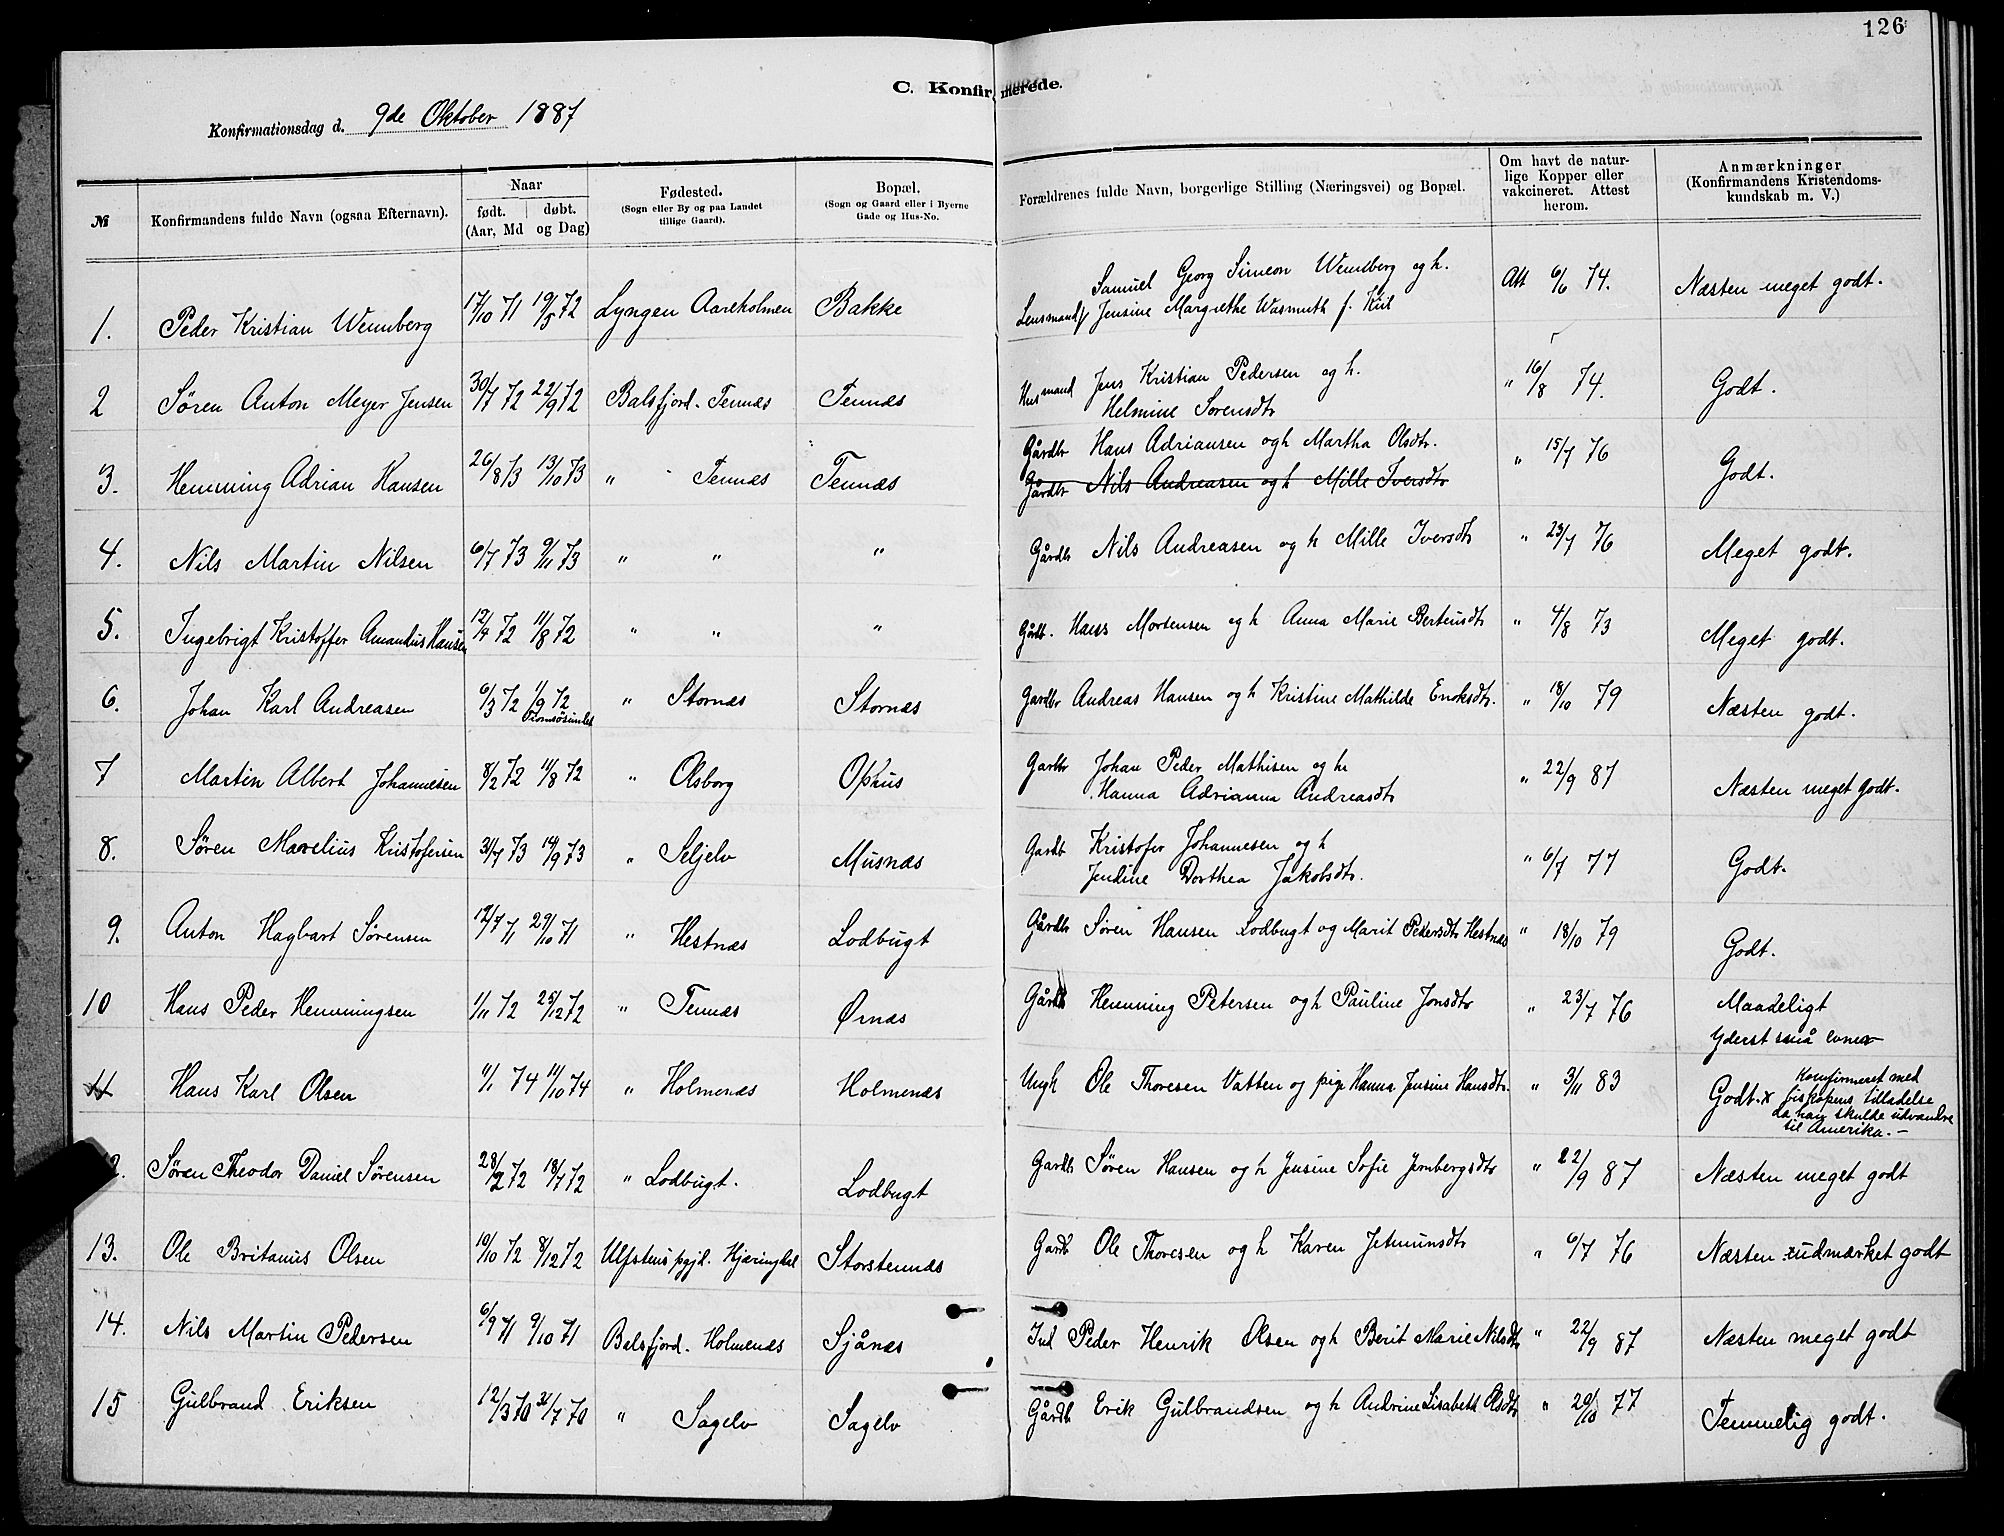 126
C. Konfirmerede.
Konfirmationsdag d. 9de Oktober 1887
№
Konfirmandens fulde Navn (ogsaa Efternavn).
Naar
født. døbt.
(Aar, Md og Dag)
Fødested.
(Sogn eller By og paa Landet
tillige Gaard).
Bopæl.
(Sogn og Gaard eller i Byerne
Gade og Hus-No.
Forældrenes fulde Navn, borgerlige Stilling (Næringsvei) og Bopæl.
Om havt de natur-
lige Kopper eller
vakcineret. Attest
herom.
Anmærkninger
(Konfirmandens Kristendoms-
kundskab m. V.)
Samuel Georg Simeon Wennberg og h.
1. Peder Kristian Wennberg 17/10 71 19/5 72 Lyngen Aareholmen Bakke Lensmand Jensine Margrethe Wasmuth f. Kiil Att 6/6 74. Næsten meget godt.
2 Søren Anton Meyer Jensen 30/7 72 22/9 72 Balsfjord. Tennæs Tennæs Husmand Jens Kristian Pedersen og h. " 16/8 74. Godt.
Helmine Sørensdtr
3. Henning Adrian Hansen 26/8 73 13/10 73 " Tennæs Tennæs Gårdbr Hans Adriansen og h Martha Olsdtr. " 15/7 76 Godt.
Gårdbr Nils Andreasen og h Mille Iversdtr
4. Nils Martin Nilsen 6/7 73 9/11 73 " " " Gårdbr Nils Andreasen og h Mille Iversdtr " 23/7 76 Meget godt.
5. Ingebrigt Kristoffer Amandus Hansen 12/4 72 11/8 72 " " " Gårdb. Hans Mortensen og h Anna Marie Berteusdtr " 4/8 73 Meget godt.
6. Johan Karl Andreasen 6/3 72 1/9 72 " Stornæs Stornæs Gardbr Andreas Hansen og h Kristine Mathilde Enoksdtr. " 18/10 79 Næsten godt.
7 Martin Albert Johannesen 8/2 72 11/8 72 " Olsborg Ophus Gardbr Johan Peder Mathisen og h " 22/9 87 Næsten meget godt.
Hanna Adrianna Andreasdtr
8. Søren Marelius Kristofersen 31/7 73 14/9 73 " Seljelv Musnæs Gardb Kristofer Johannesen og h " 6/7 77 Godt.
Jendine Dorthea Jakobsdtr.
9. Anton Hagbart Sørensen 12/7 71 29/10 71 " Hestnæs Lodbugt Gårdbr Søren Hansen Lodbugt og Marit Pedersdtr Hestnæs " 18/10 79 Godt.
10 Hans Peder Henningsen 1/11 72 25/12 72 " Tennæs Ørnæs Gårdb Henning Petersen og h Pauline Jonsdtr " 23/7 76 Maadeligt
Yderst små evner
11 Hans Karl Olsen 11/1 74 11/10 74 " Holmenæs Holmenæs Ungk Ole Thoresen Vatten og pige Hanna Jensine Hansdtr. " 3/11 83 Godt. x Konfirmeret med
biskopens tilladelse
da han skulde udvandre
til Amerika.-
2. Søren Theodor Daniel Sørensen 28/2 72 18/7 72 " Lodbugt. Lodbugt Gardb Søren Hansen og h Jensine Sofie Jernbergsdtr " 22/9 87 Næsten meget godt
13. Ole Britanus Olsen 10/10 72 8/12 72 Ulfstens pgjd. Kjæringdal Storstennæs Gardb Ole Thoresen og h Karen Jetmunsdtr " 6/7 76 Næsten udmærket godt
14. Nils Martin Pedersen 6/9 71 9/10 71 Balsfjord. Holmenæs Sjånæs Ind Peder Henrik Olsen og h Berit Marie Nilsdtr " 22/9 87 Næsten meget godt
15 Gulbrand Eriksen 12/3 70 31/7 70 " Sagelv Sagelv Gårdb Erik Gulbrandsen og h Andrine Lisabeth Olsdtr " 20/10 77 Temmelig godt.